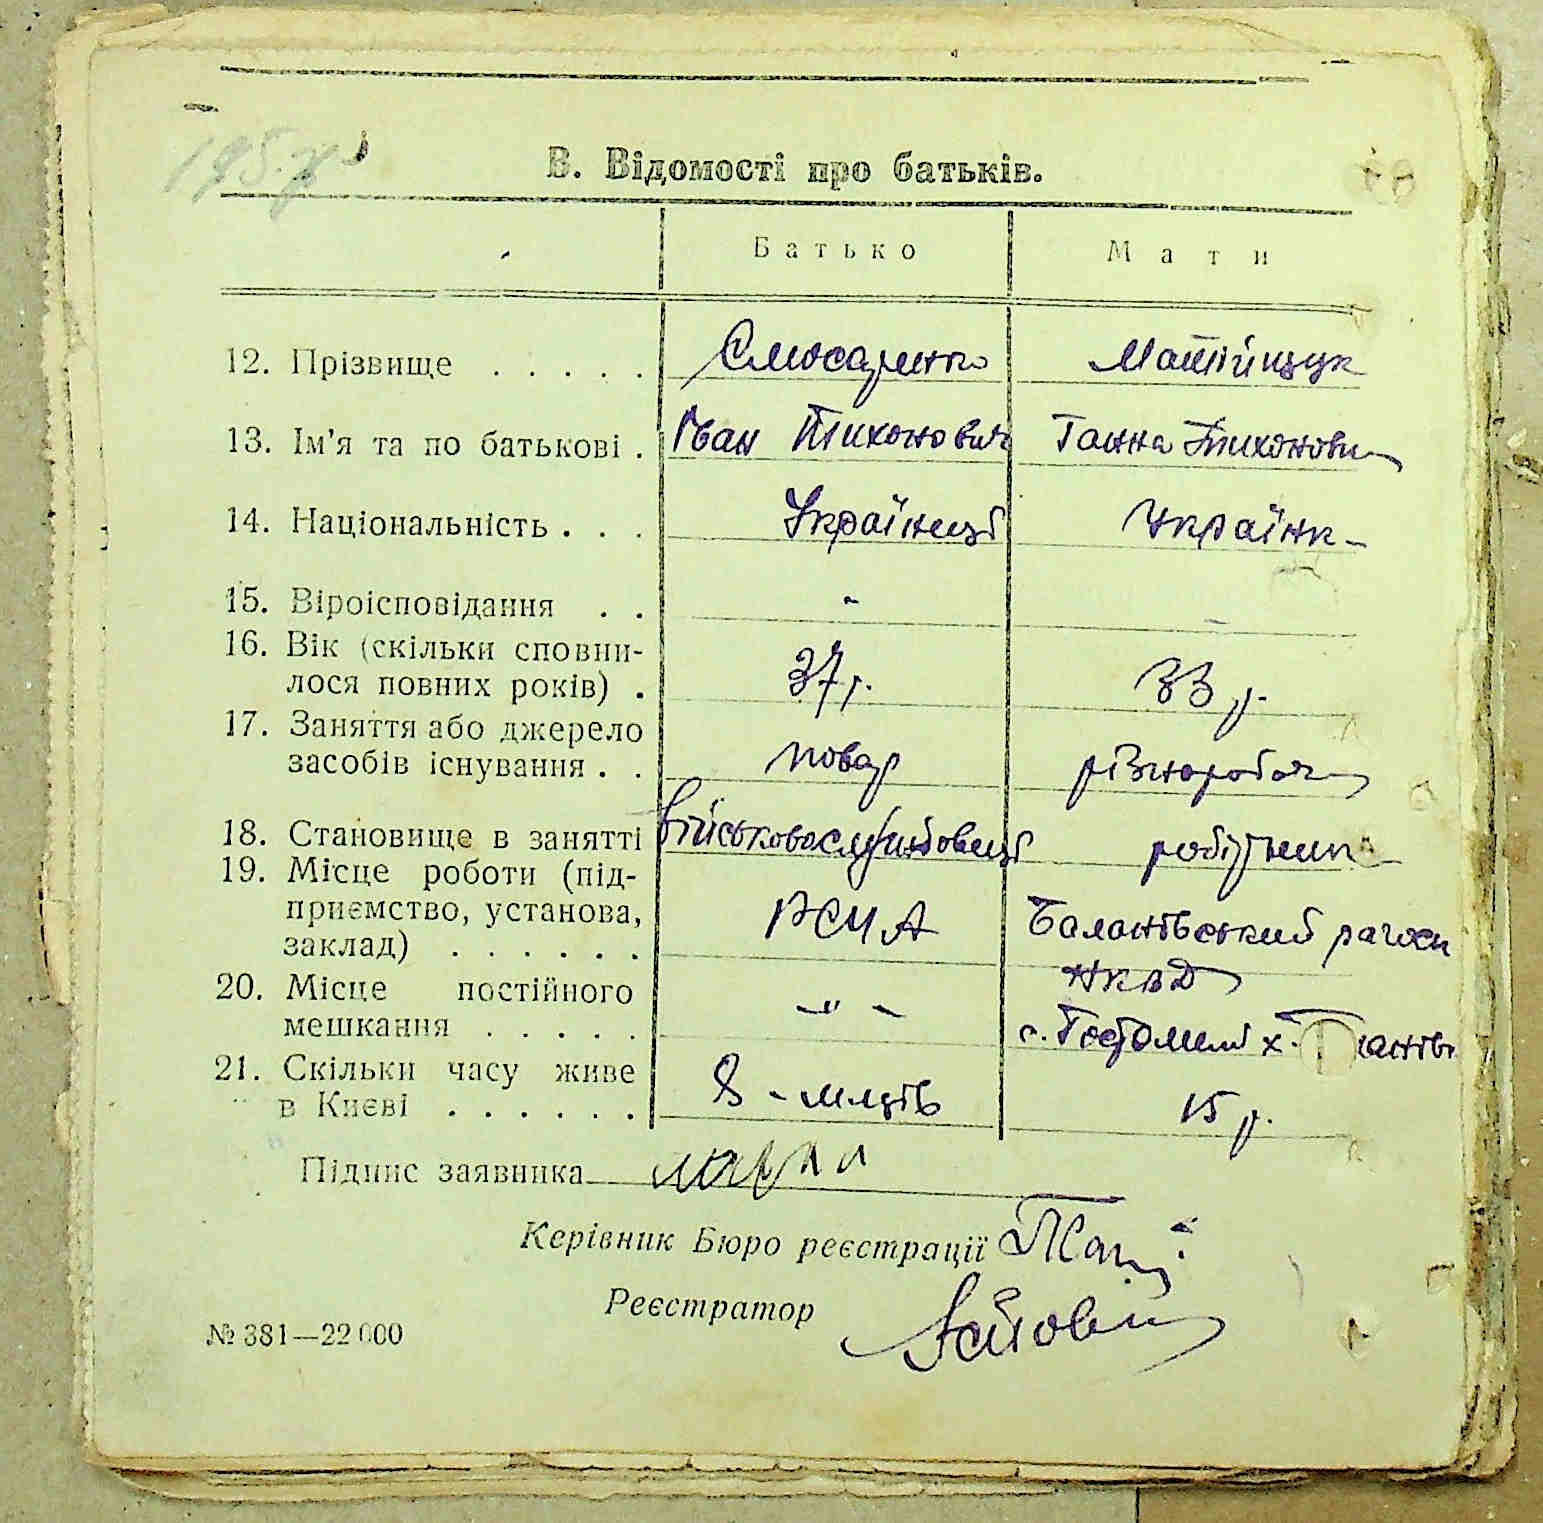 В. Відомості про батьків.
Батько Мати
12. Прізвище . . . . . Слюсаренко Матвійчук
13. Ім'я та по батькові . Іван Тихонович Ганна Тихонови
14. Національність . . . Українець Українк
15. Віроісповідання . . - -
16. Вік (скільки сповни-
лося повних років) . 37 р. 33 р.
17. Заняття або джерело
засобів існування . . повар різнороboч
18. Становище в занятті військовослужбовець робітниця
19. Місце роботи (під-
приємство, установа,
заклад) . . . . . . РСЧА
НКВД
20. Місце постійного
мешкання . . . . . -"- с. Гостомель х.
21. Скільки часу живе
в Києві . . . . . . 8 - місців 15 р.
Підпис заявника
Керівник Бюро реєстрації
Реєстратор
№ 381—22 000